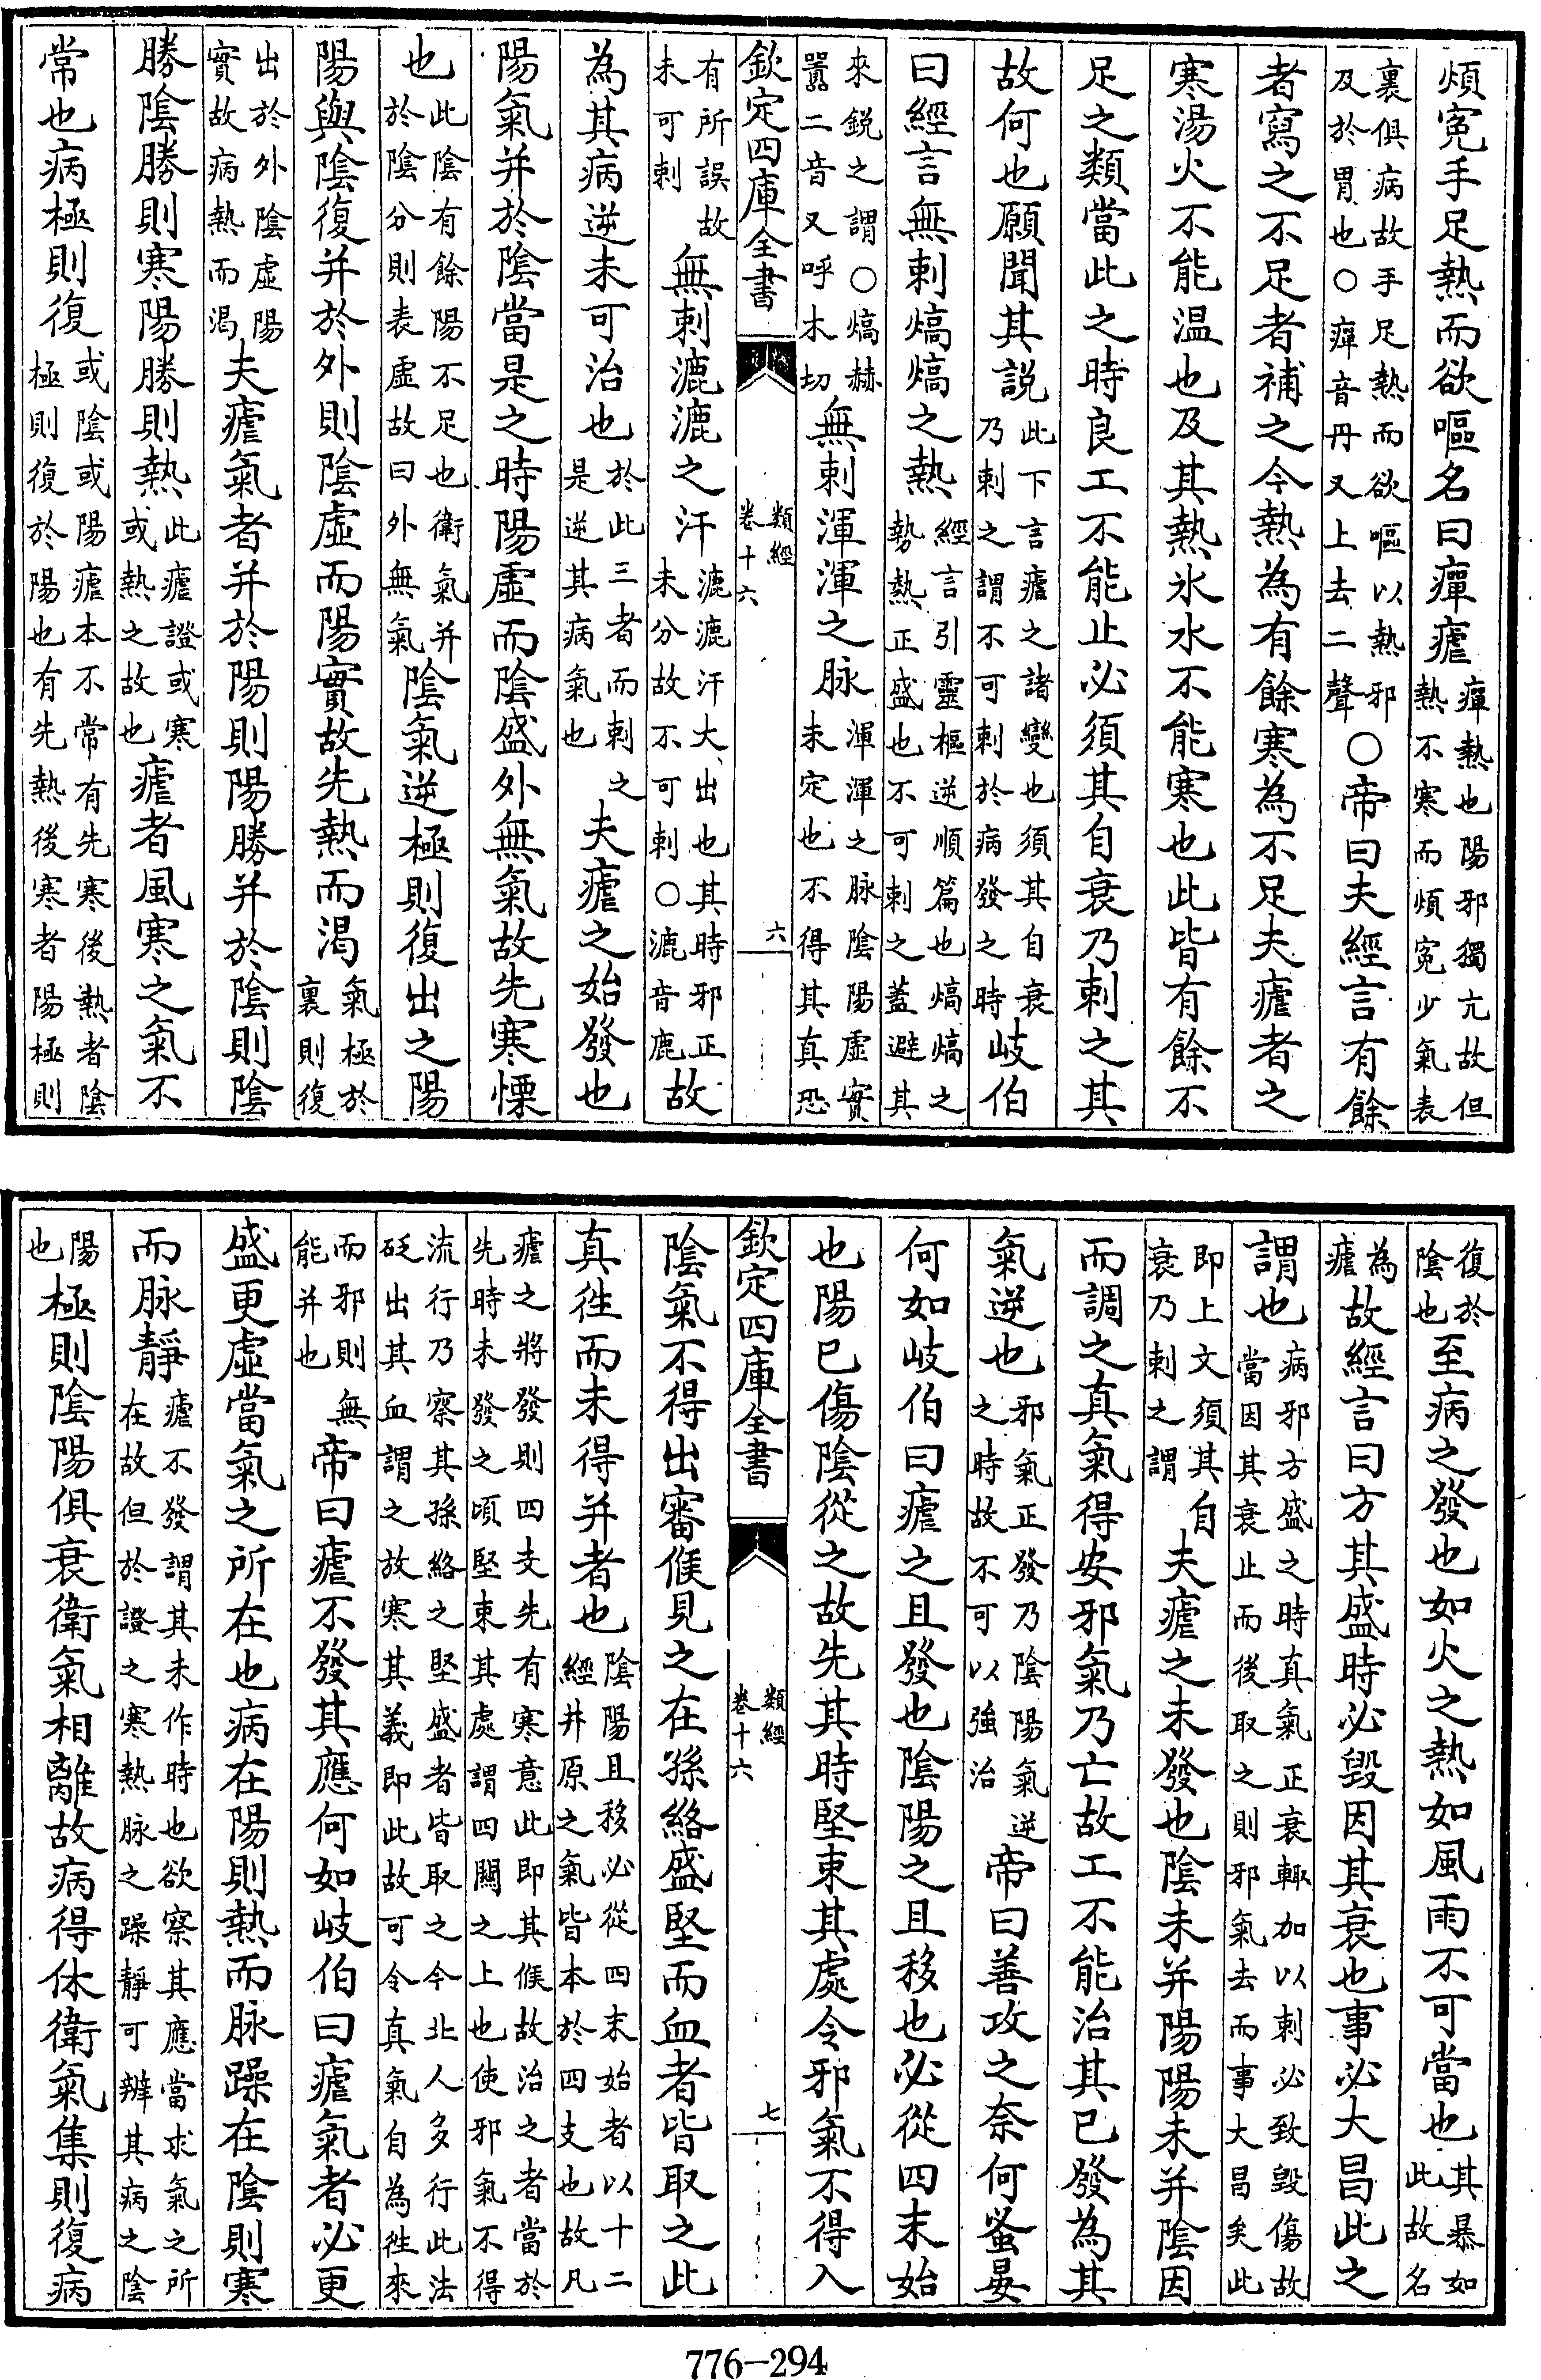 煩寃手足熱而欲嘔名曰癉瘧癉熱也陽邪獨亢故但熱不寒而煩寃少氣表
裏俱病故手足熱而欲嘔以熱邪及於胃也○癉音丹又上去二聲○帝曰夫經言有餘
者寫之不足者補之今熱為有餘寒為不足夫瘧者之
寒湯火不能温也及其熱氷水不能寒也此皆有餘不
足之類當此之時良工不能止必須其自衰乃刺之其
故何也願聞其說此下言瘧之諸變也須其自衰乃刺之謂不可刺於病發之時岐伯
曰經言無刺熇熇之熱經言引靈樞逆順篇也熇熇之勢熱正盛也不可刺之蓋避其
來銳之謂○熇赫嚣二音又呼木切無刺渾渾之脉渾渾之脉陰陽虛實未定也不得其真恐
欽定四庫全書 類經 卷十六 六
有所誤故未可刺無刺漉漉之汗漉漉汗大出也其時邪正未分故不可刺○漉音鹿故
為其病逆未可治也於此三者而刺之是逆其病氣也夫瘧之始發也
陽氣并於陰當是之時陽虛而陰盛外無氣故先寒慄
也此陰有餘陽不足也衛氣并於陰分則表虛故曰外無氣陰氣逆極則復出之陽
陽與陰復并於外則陰虛而陽實故先熱而渴氣極於裏則復
出於外陰虛陽實故病熱而渴夫瘧氣者并於陽則陽勝并於陰則陰
勝陰勝則寒陽勝則熱此瘧證或寒或熱之故也瘧者風寒之氣不
常也病極則復或陰或陽瘧本不常有先寒後熱者陰極則復於陽也有先熱後寒者陽極則
復於陰也至病之發也如火之熱如風雨不可當也其暴如此故名
為瘧故經言曰方其盛時必毀因其衰也事必大昌此之
謂也病邪方盛之時真氣正衰輒加以刺必致毀傷故當因其衰止而後取之則邪氣去而事大昌矣此
即上文須其自衰乃刺之謂夫瘧之未發也陰未并陽陽未并陰因
而調之真氣得安邪氣乃亡故工不能治其已發為其
氣逆也邪氣正發乃陰陽氣逆之時故不可以強治帝曰善攻之奈何蚤晏
何如岐伯曰瘧之且發也陰陽之且移也必從四末始
也陽已傷陰從之故先其時堅束其處令邪氣不得入
欽定四庫全書 類經 卷十六 七
陰氣不得出審候見之在孫絡盛堅而血者皆取之此
真徃而未得并者也陰陽且移必從四末始者以十二經井原之氣皆本於四支也故凡
瘧之將發則四支先有寒意此即其候故治之者當於先時未發之頃堅束其處謂四關之上也使邪氣不得
流行乃察其孫絡之堅盛者皆取之今北人多行此法砭出其血謂之放寒其義即此故可令真氣自為徃來
而邪則無能并也帝曰瘧不發其應何如岐伯曰瘧氣者必更
盛更虛當氣之所在也病在陽則熱而脉躁在陰則寒
而脉靜瘧不發謂其未作時也欲察其應當求氣之所在故但於證之寒熱脉之躁靜可辨其病之陰
陽也極則陰陽俱衰衛氣相離故病得休衛氣集則復病
776-294